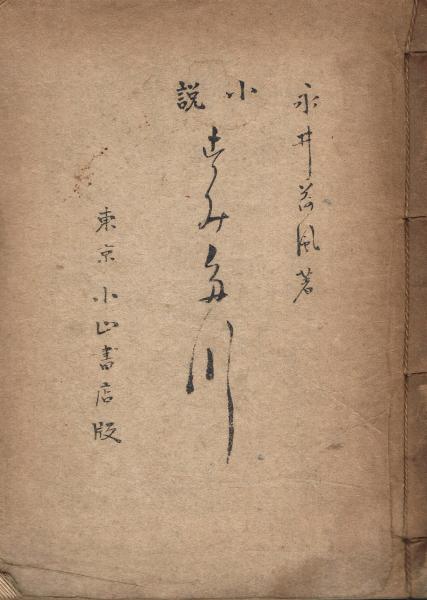 永井荷風著
小説
すみた川
東京小山書店版